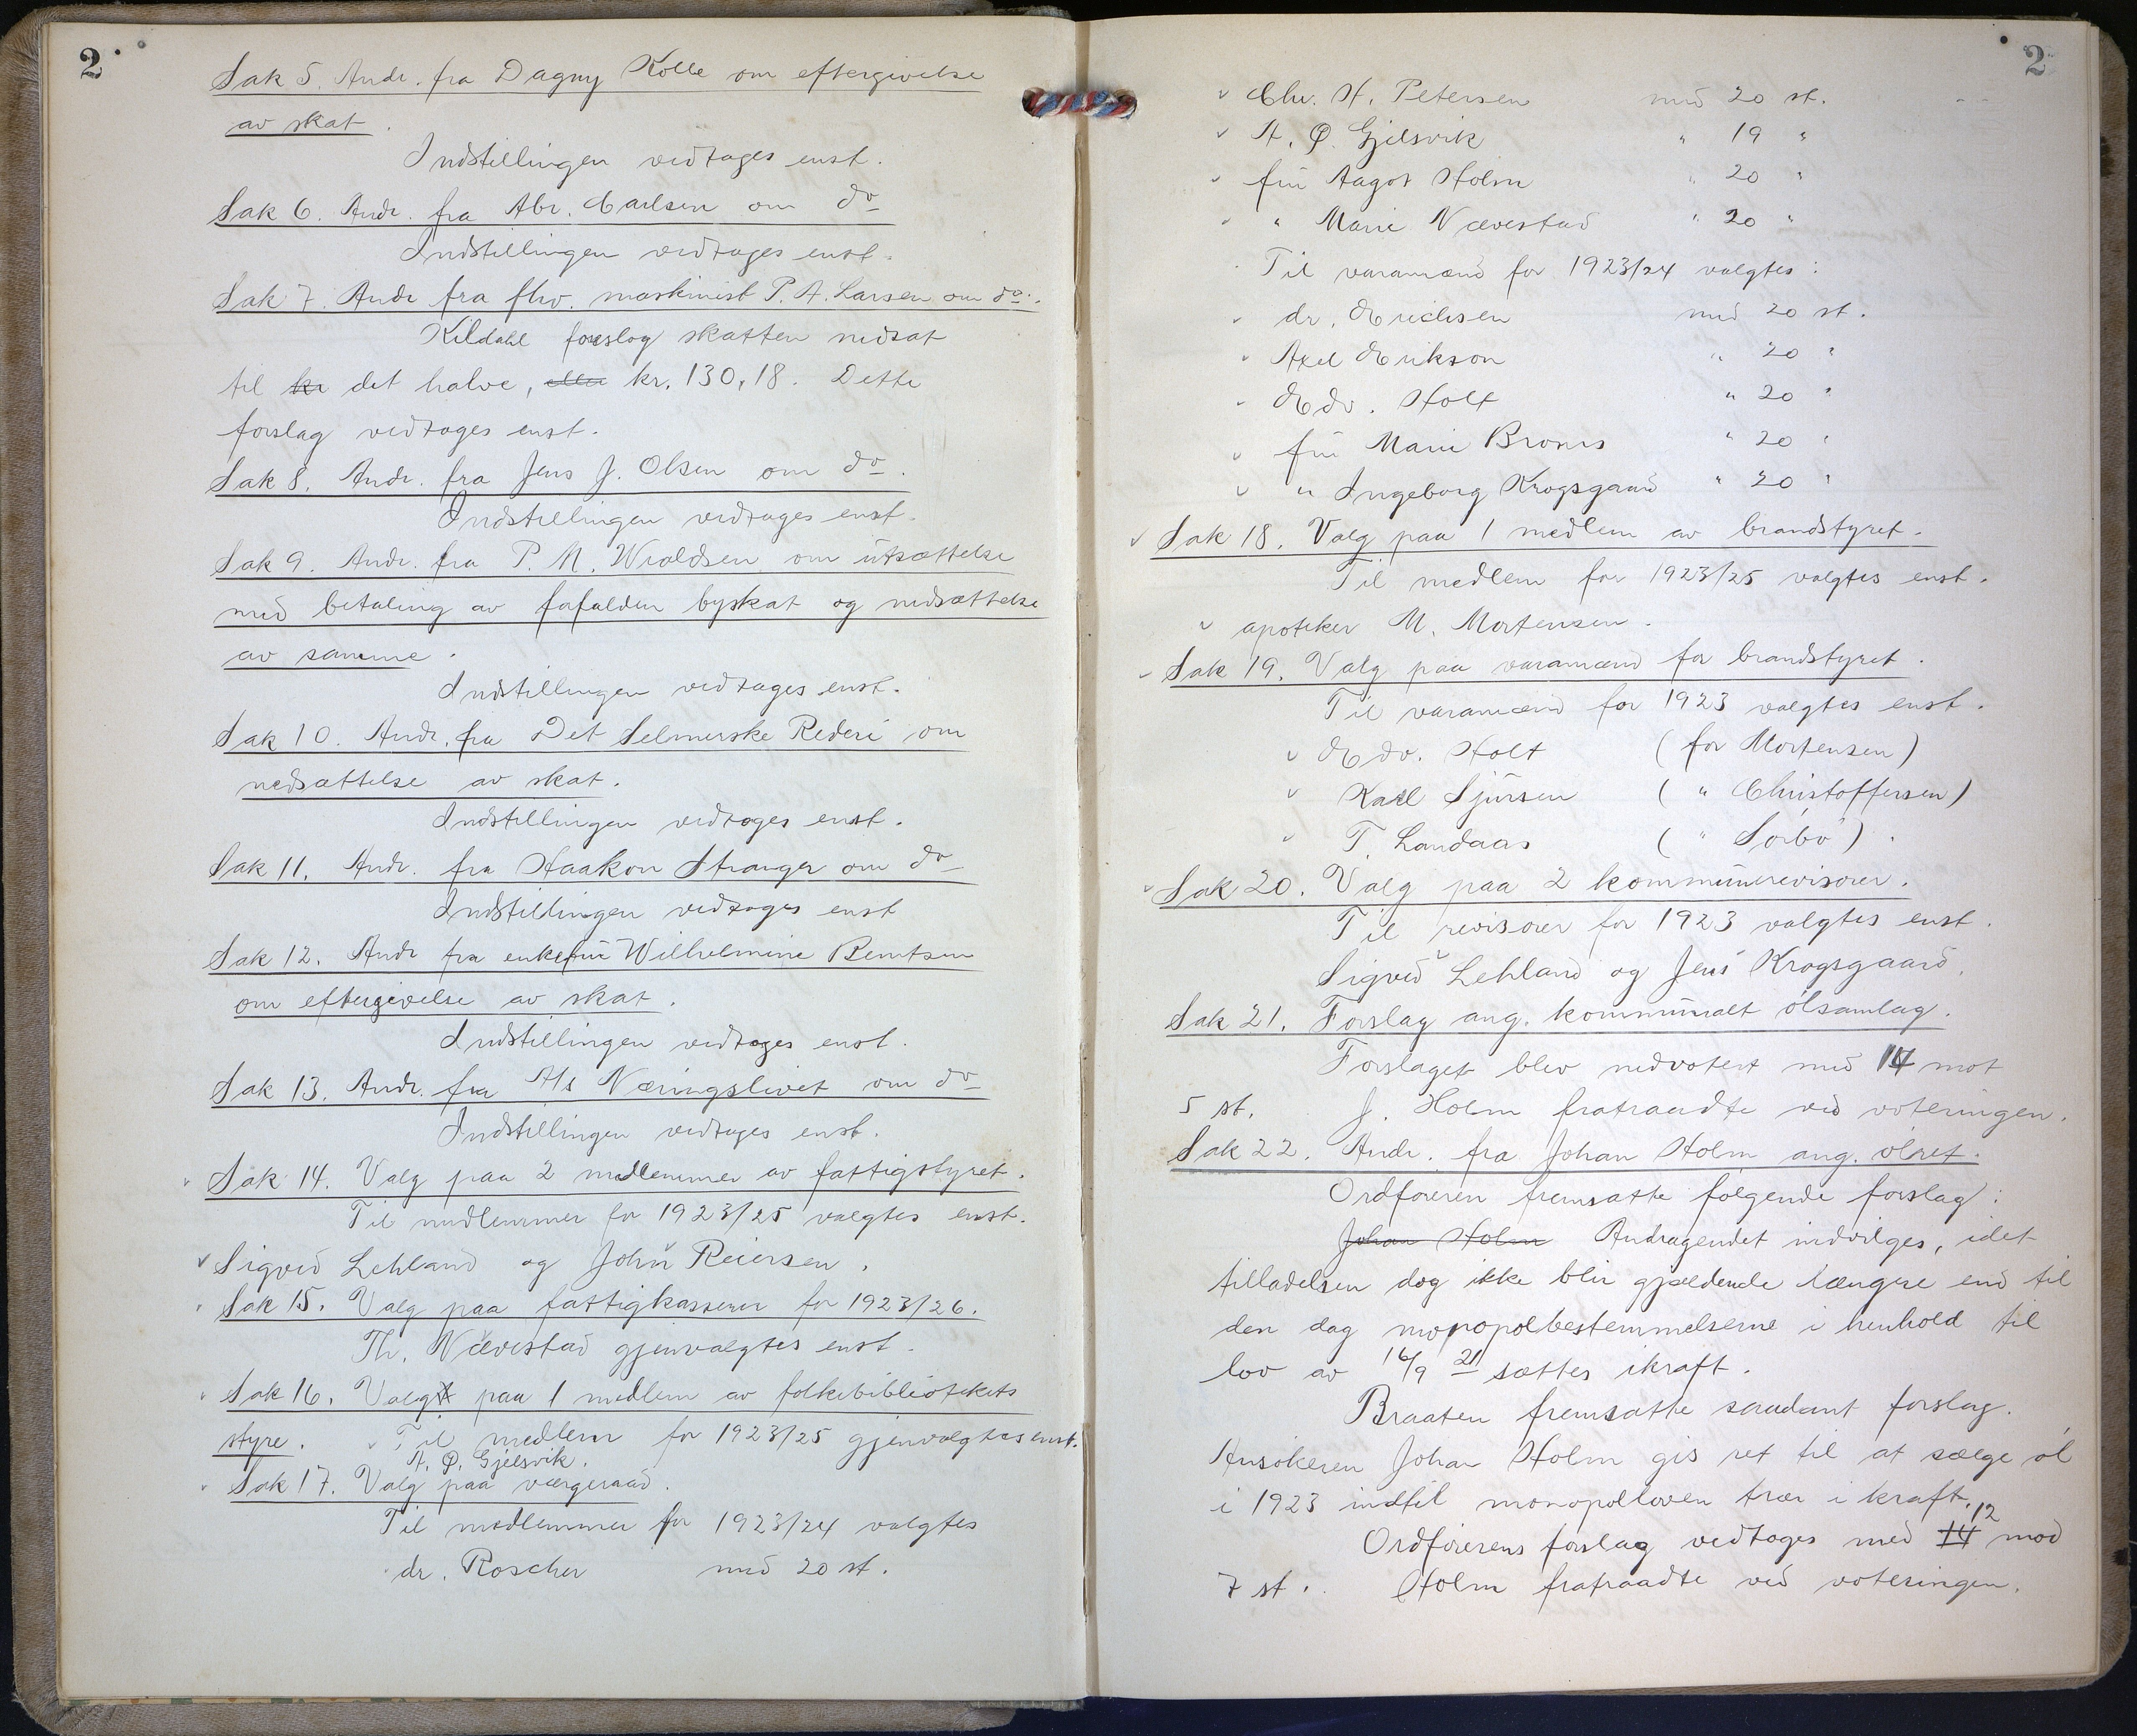 2
Sak 5. Andr. fra Dagny Kolle om eftergivelse
av skat.
Indstillingen vedtages enst.
Sak 6. Andr. fra Abr. Carlsen om do
Indstillingen vedtages enst.
Sak 7. Andr fra fhv. maskinist P. A. Larsen om do.
Kildahl foreslog skatten nedsat
til kr det halve, eller kr. 130,18. Dette
forslag vedtages enst.
Sak 8. Andr. fra Jens J. Olsen om do.
Indstillingen vedtages enst.
Sak 9. Andr. fra P. M. Wroldsen om utsættelse
med betaling av fafalden byskat og nedsættelse
av samme.
Indstillingen vedtages enst.
Sak 10. Andr. fra Det Selmerske Rederi om
nedsættelse av skat.
Indstillingen vedtages enst.
Sak 11. Andr. fra Haakon Stranger om do
Indstillingen vedtages enst
Sak 12. Andr fra enkefru Wilhelmine Berntsen
om eftergivelse av skat.
Indstillingen vedtages enst.
Sak 13. Andr. fra A/s Næringslivet om do
Indstillingen vedtages enst.
Sak 14. Valg paa 2 medlemmer av fattigstyret.
Til medlemmer for 1923/25 valgtes enst.
Sigved Lehland og John Reiersen.
Sak 15. Valg paa fattigkasserer for 1923/26.
Th. Nævestad gjenvalgtes enst.
Sak 16. Valgt paa 1 medlem av folkebibliotekets
styre. Til medlem for 1923/25 gjenvalgtes enst.
A. Ø. Gjelsvik.
Sak 17. Valg paa værgeraad.
Til medlemmer for 1923/24 valgtes
dr. Roscher med 20 st.
2
Chr. H. Petersen med 20 st.
A. Ø. Gjelsvik " 19 "
fru Aagot Holm " 20 "
" Marie Nævestad " 20 "
Til varamænd for 1923/24 valgtes:
dr. Erichsen med 20 st.
Axel Erikson " 20 "
Edv. Holt " 20 "
fru Marie Broms " 20 "
" Ingeborg Krogsgaard " 20 "
Sak 18. Valg paa 1 medlem av brandstyret.
Til medlem for 1923/25 valgtes enst.
apoteker M. Mortensen.
Sak 19. Valg paa varamænd for brandstyret.
Til varamænd for 1923 valgtes enst.
Edv. Holt (for Mortensen)
Karl Sjursen ( " Christoffersen)
T. Landaas ( " Sørbø).
Sak 20. Valg paa 2 kommunerevisorer.
Til revisorer for 1923 valgtes enst.
Sigved Lehland og Jens Krogsgaard.
Sak 21. Forslag ang. kommunalt ølsamlag.
Forslaget blev nedvotert med 14 mot
5 st. J. Holm fratraadte ved voteringen.
Sak 22. Andr. fra Johan Holm ang. ølret.
Ordføreren fremsatte følgende forslag:
Johan Holm Andragendet indvilges, idet
tilladelsen dog ikke blir gjældende længere end til
den dag monopolbestemmelserne i henhold til
lov av 16/9 21 sættes ikraft.
Braaten fremsatte saadant forslag.
Ansøkeren Johan Holm gis ret til at sælge øl
i 1923 indtil monopolloven trær i kraft.
Ordførerens forslag vedtages med 14 12 mod
7 st. Holm fratraadte ved voteringen.